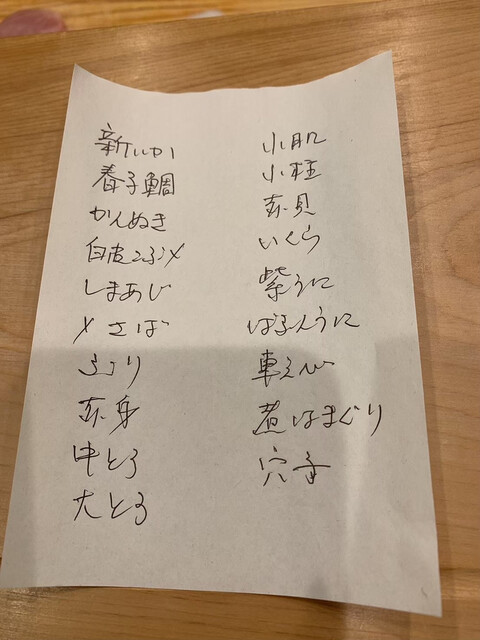 新いか
春子鯛
かんぬき
白皮こぶ〆
しまあじ
〆さば
ぶり
赤身
中とろ
大とろ
小肌
小柱
赤貝
いくら
紫うに
ばふんうに
車えび
煮はまぐり
穴子